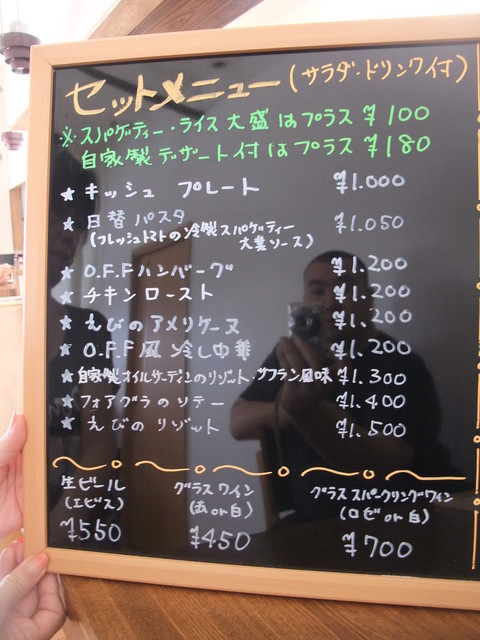 セットメニュー(サラダ・ドリンク付)
※スパゲティー・ライス大盛はプラス ¥100
自家製デザート付はプラス ¥180
★ キッシュ プレート ¥1.000
★ 日替パスタ ¥1.050
(フレッシュトマトの冷製スパゲティー
大葉ソース)
★ O.F.Fハンバーグ ¥1.200
★ チキンロースト ¥1.200
★ えびのアメリケーヌ ¥1.200
★ O.F.F風冷し中華 ¥1.200
★ 自家製オイルサーディンのリゾット・サフラン風味 ¥1.300
★ フォアグラのソテー ¥1.400
★ えびのリゾット ¥1.500
生ビール
(エビス)
¥550
グラスワイン
(赤or白)
¥450
グラススパークリングワイン
(ロゼor白)
¥700